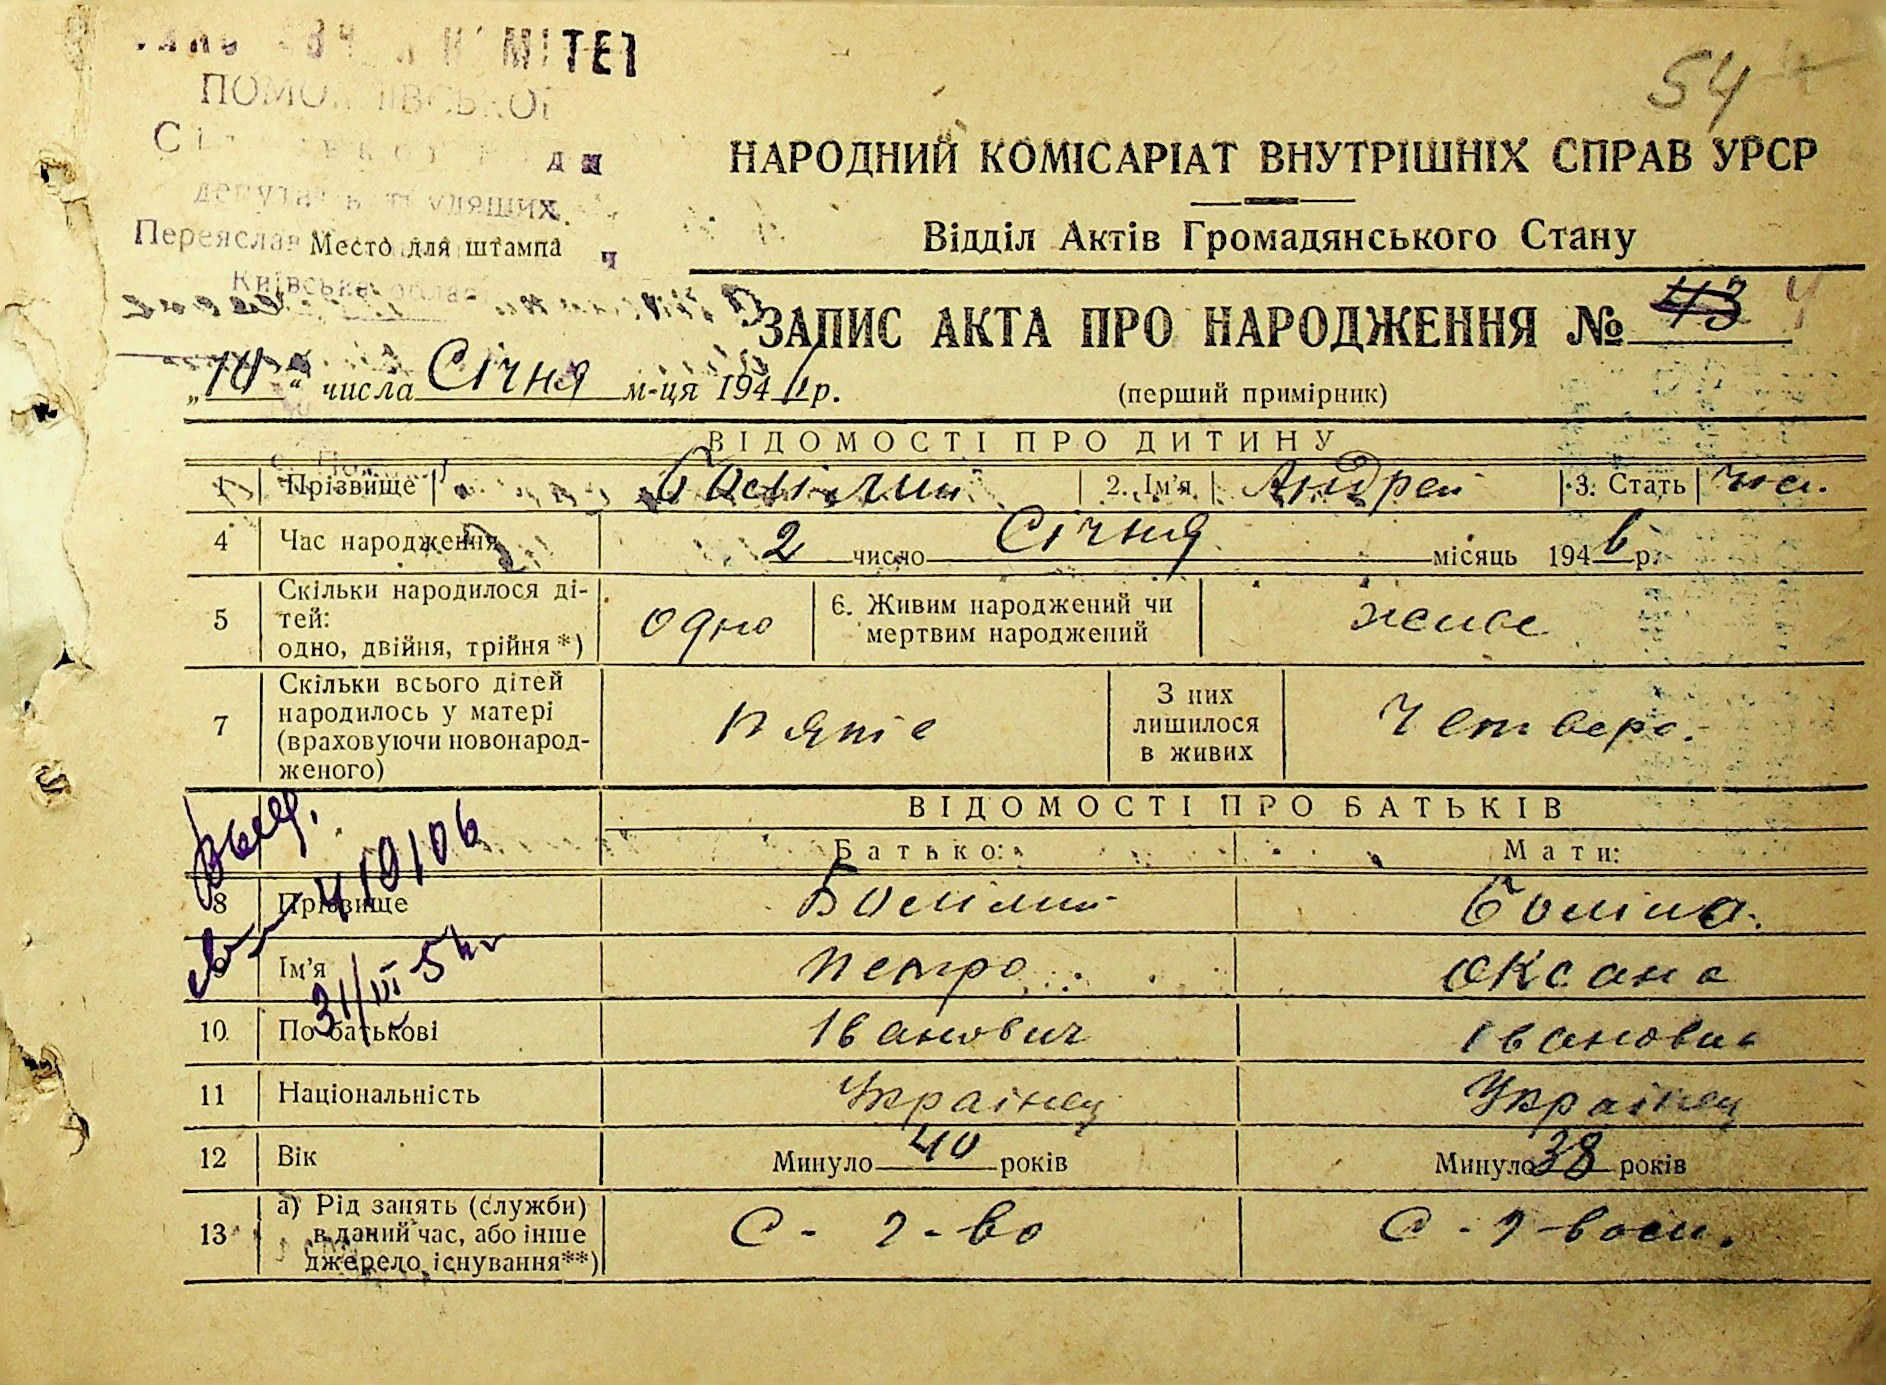 54
Місто для штампа
НАРОДНИЙ КОМІСАРІАТ ВНУТРІШНІХ СПРАВ УРСР
Відділ Актів Громадянського Стану
ЗАПИС АКТА ПРО НАРОДЖЕННЯ № 43 4
„10“ числа Січня м-ця 194 р.
(перший примірник)
ВІДОМОСТІ ПРО ДИТИНУ
1 Прізвище 2. Ім'я Андрей 3. Стать
4 Час народження 2 число Січня місяць 1946 р.
5 Скільки народилося ді-
тей:
одно, двійня, трійня *) одно 6. Живим народжений чи
мертвим народжений живе
7 Скільки всього дітей
народилось у матері
(враховуючи новонарод-
женого) пятіє З них
лишилося
в живих Четверо.
ВІДОМОСТІ ПРО БАТЬКІВ
Батько: Мати:
8 Прізвище
Ім'я Петро Оксана
10 По батькові Іванович Івановна
11 Національність Українец Українец
12 Вік Минуло 40 років Минуло 38 років
13 а) Рід занять (служби)
в даний час, або інше
джерело існування**) С-г-во
419106
31/III 54 г